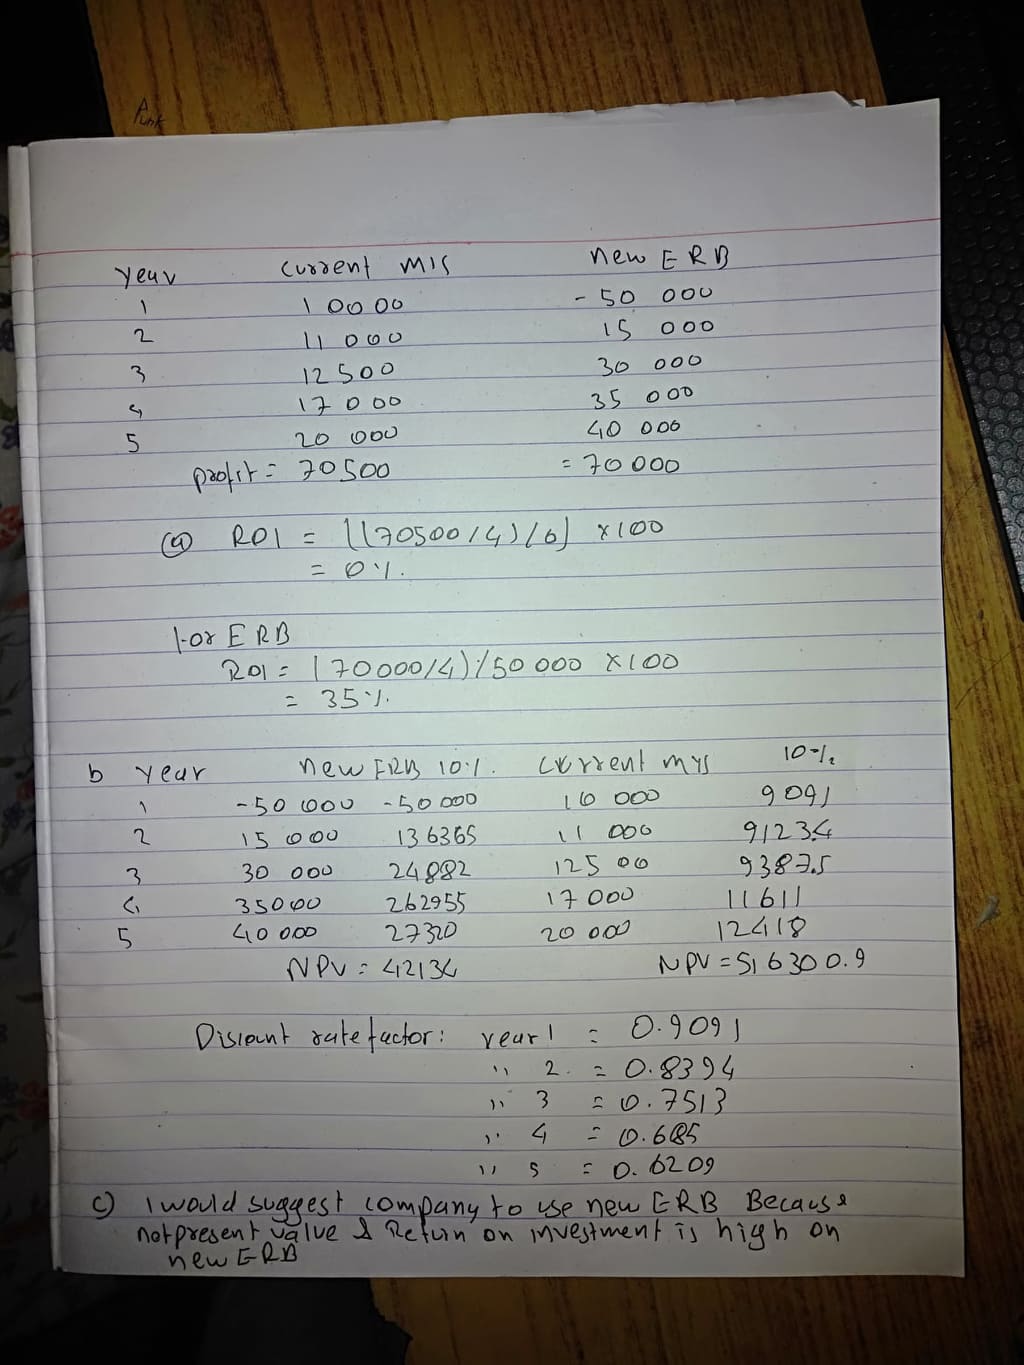 Punk
Year current MIS new ERB
1 10000 - 50 000
2 11 000 15 000
3 12500 30 000
4 17000 35 000
5 20 000 40 000
profit = 70500 = 70 000
(a) ROI = ((70500/4)/0) ×100
= 0%.
For ERB
ROI = (70000/4)/50 000 ×100
= 35%.
b Year new ERB 10%. current mys 10%
1 -50 000 -50 000 10 000 9091
2 15 000 136365 11 000 91234
3 30 000 24882 125 00 9387.5
4 35000 262955 17 000 11611
5 40 000 27320 20 000 12418
NPV = 42134 NPV = 516300.9
Disiount rate factor: year 1 = 0.9091
" 2. = 0.8394
" 3 = 0.7513
" 4 = 0.685
" 5 = 0.6209
c) I would suggest company to use new ERB Because
notpresent value & Return on investment is high on
new ERB